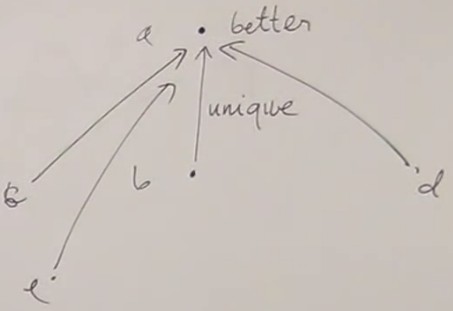 a better
unique
b
d
e